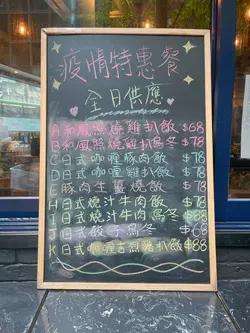 疫情特惠餐
全日供應
A 和風照燒雞扒飯 $68
B 和風照燒雞扒烏冬 $78
C 日式咖喱豚肉飯 $78
D 日式咖喱雞扒飯 $78
E 豚肉生薑燒飯 $78
H 日式燒汁牛肉飯 $78
I 日式燒汁牛肉烏冬 $88
J 日式餃子烏冬 $68
K 日式咖喱吉烈豬扒飯 $88